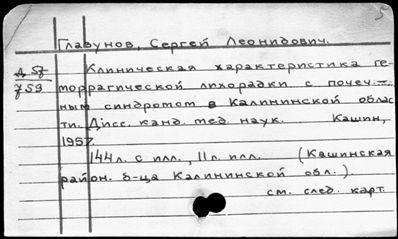 5
Главунов, Сергей Леонидович.
Д 57
753
Клиническая характеристика ге-
моррагической лихорадки с почеч.-
ным синдромом в Калининской облас
ти. Дисс. канд. мед. наук. Кашин,
1957.
144 л. с илл., 11 л. илл. (Кашинская
район. б-ца Калининской обл.).
см. след. карт.